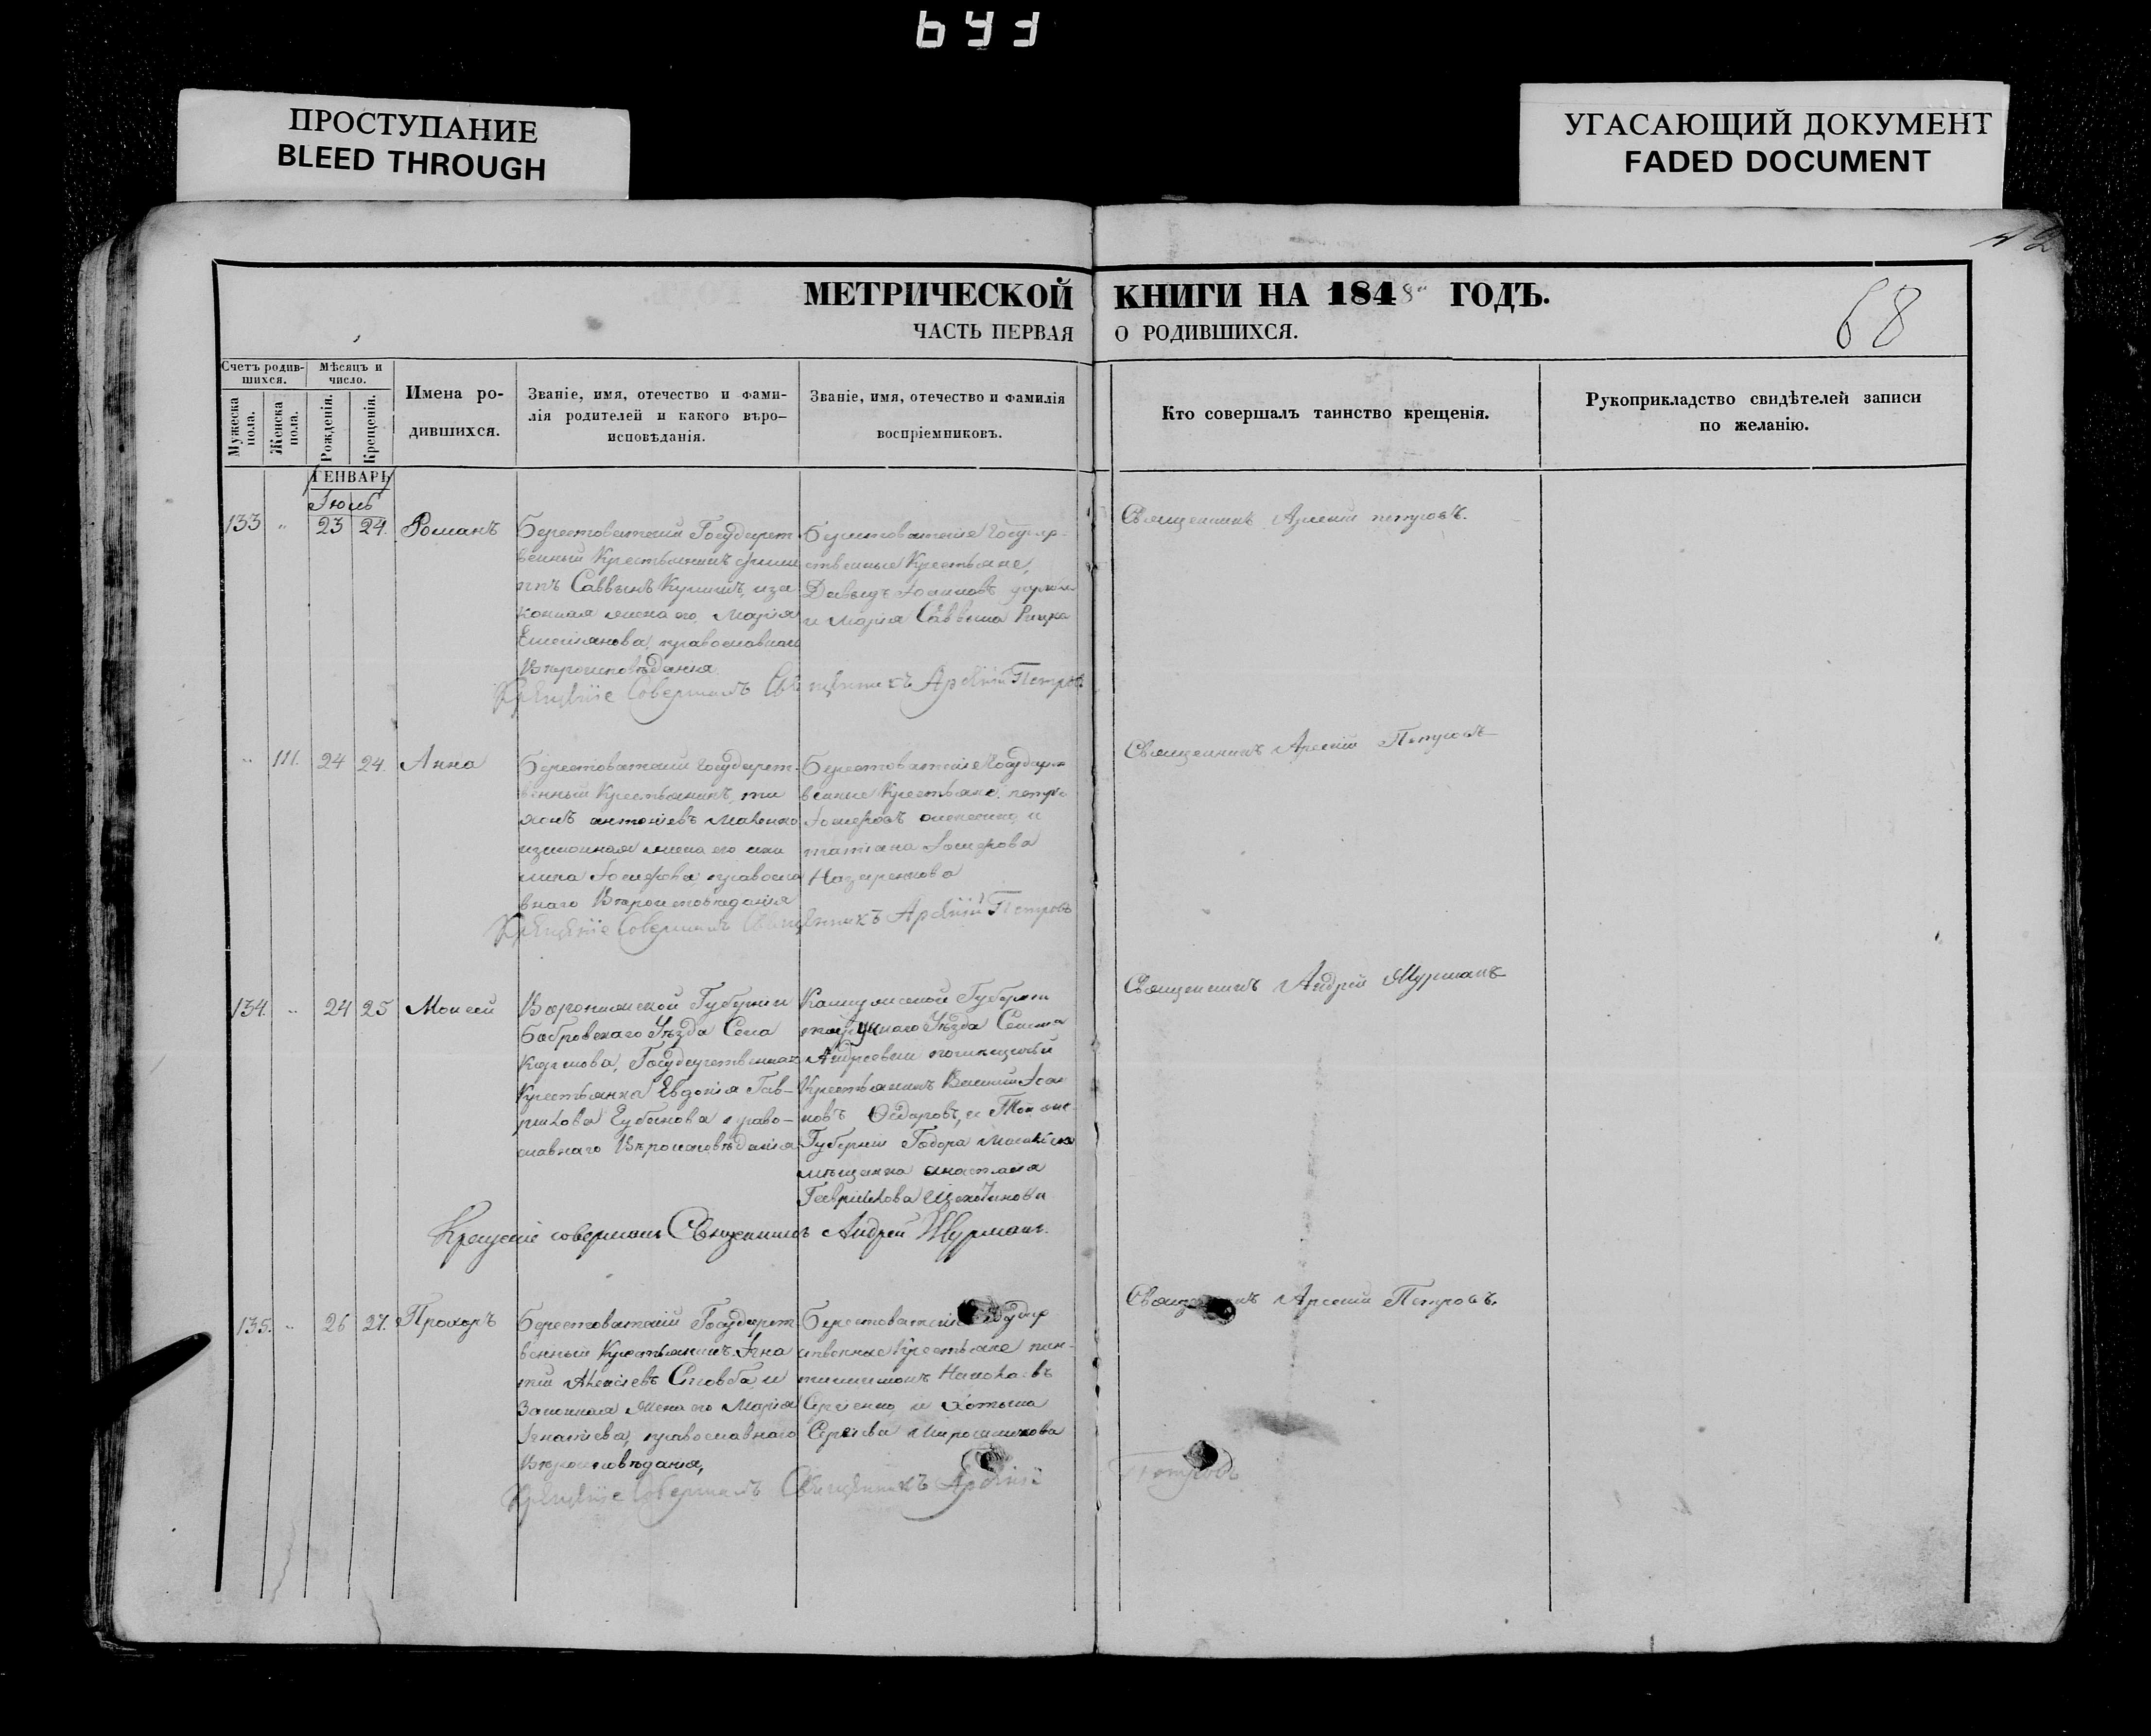 643
ПРОСТУПАНИЕ
BLEED THROUGH
УГАСАЮЩИЙ ДОКУМЕНТ
FADED DOCUMENT
МЕТРИЧЕСКОЙ КНИГИ НА 1848 ГОДЪ.
ЧАСТЬ ПЕРВАЯ О РОДИВШИХСЯ.
68
Счетъ родив-
шихся.
Мужеска пола.
Женска пола.
Мѣсяцъ и
число.
Рожденія.
Крещенія.
Имена ро-
дившихся.
Званіе, имя, отечество и фами-
лія родителей и какого вѣро-
исповѣданія.
Званіе, имя, отечество и фамилія
воспріемниковъ.
Кто совершалъ таинство крещенія.
Рукоприкладство свидѣтелей записи
по желанію.
ГЕНВАРЬ
Іюль
133 " 23 24. Романъ
Берестоватскій Государст
венный Крестьянинъ Фили
ппъ Саввинъ
конная жена его Марія
православнаго
Вѣроисповѣданія
Берестоватскіе Государ
ственные Крестьяне,
Давыдъ Іоанновъ
и Марія Саввина
Священникъ Арсеній Петровъ.
Крещеніе Совершалъ Священникъ Арсеній Петровъ
" 111. 24 24. Анна
Берестоватскій Государст-
венный Крестьянинъ
антоніевъ
жена его аки
лина Іосифова, правосла
внаго Вѣроисповѣданія
Берестоватскіе Государс
венные Крестьяне. петръ
Іосифовъ и
татіана Іосифова
Назаренкова
Священникъ Арсеній Петровъ
Крещеніе Совершалъ Священникъ Арсеній Петровъ
134. " 24 25 Моисей
Воронежской Губерніи
Бобровскаго Уѣзда Села
Государственная
Крестьянка Евдокія Гав-
рилова право-
славнаго Вѣроисповѣданія
Калужской Губерніи
Уѣзда
Крестьянинъ
новъ Федоровъ, и Той же
Губерніи
мѣщанка анастасія
Гаврилова
Священникъ Андрей Шурманъ
Крещеніе совершалъ Священникъ Андрей Шурманъ.
135. " 26 27. Прохоръ
Берестоватскій Государст-
венный Крестьянинъ. Игна
тій Алексіевъ Стовба, и
Законная жена его Марія
Игнатіева, православнаго
Вѣроисповѣданія,
Берестоватскіе Государ
ственные Крестьяне пан-
телеимонъ
Сергіенко, и Хотына
Сергіева Мирошникова
Священникъ Арсеній Петровъ.
Крещеніе Совершалъ Священникъ Арсеній Петровъ